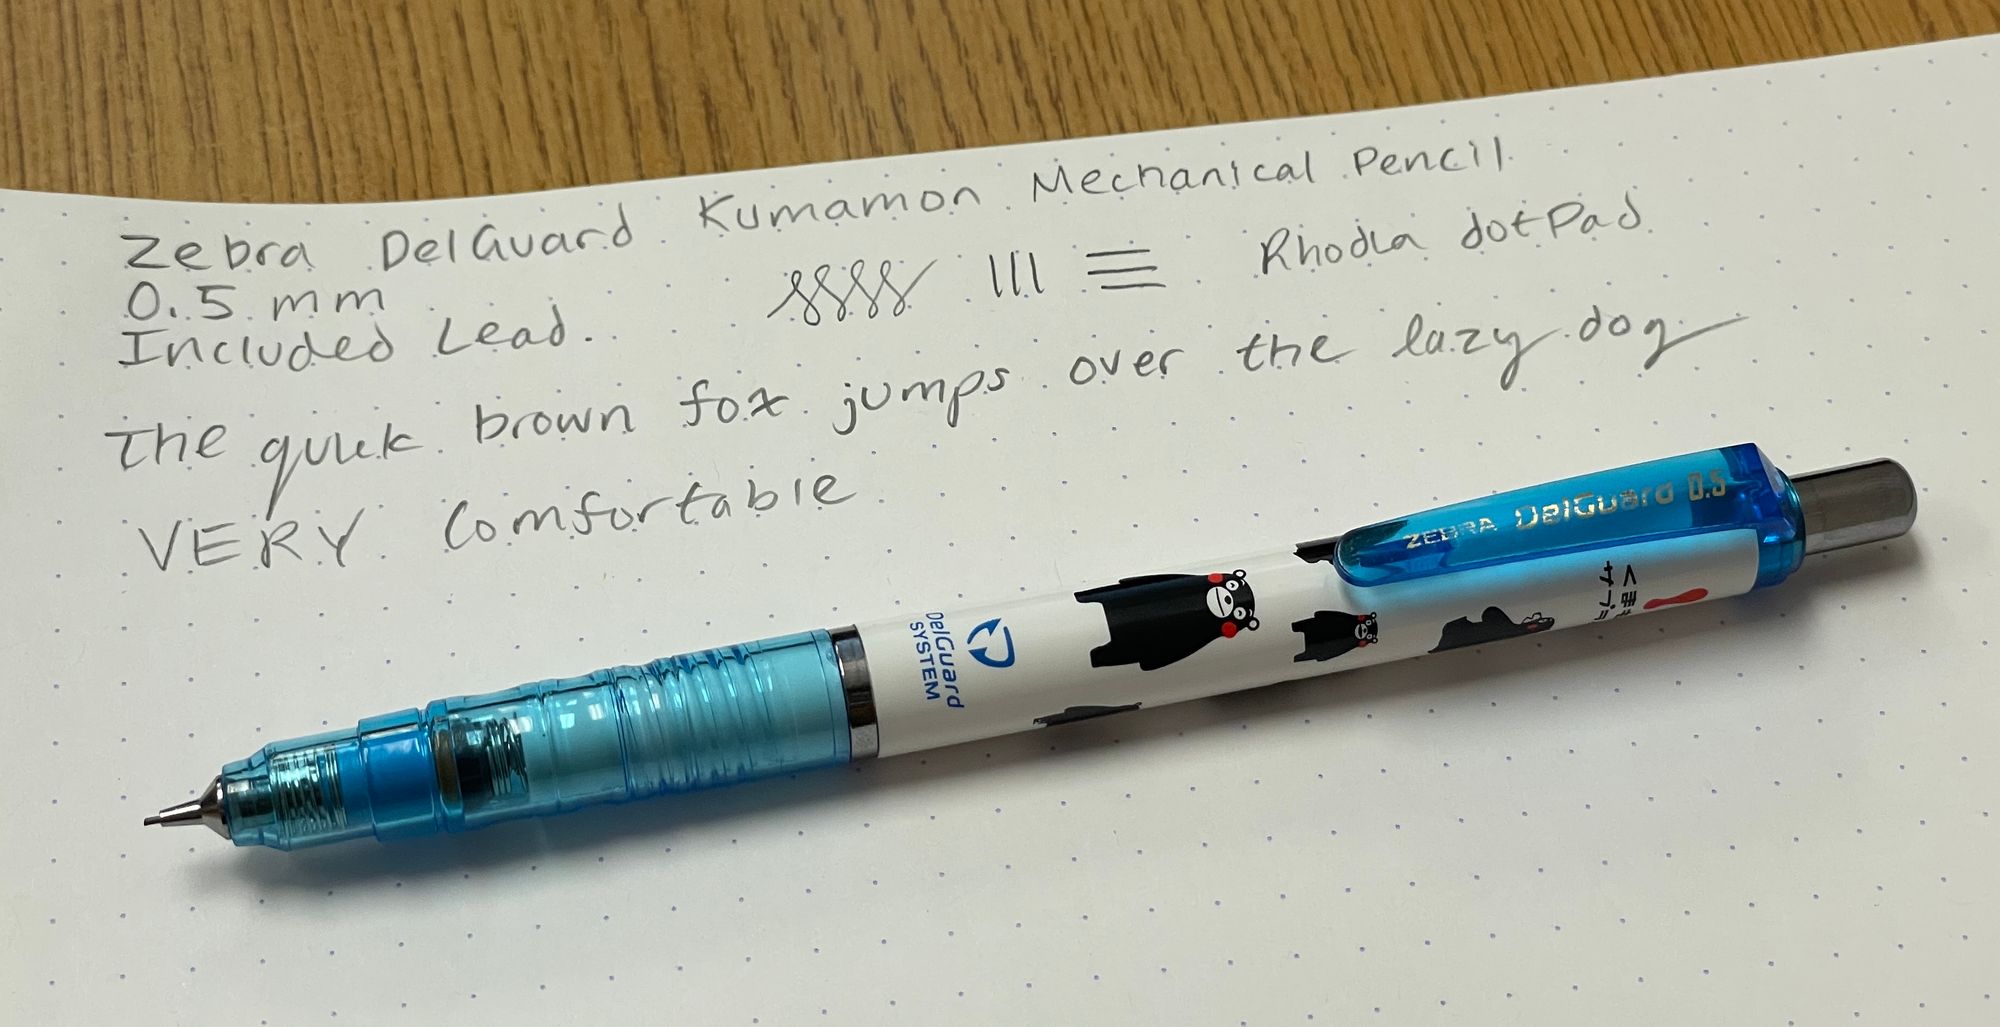 Zebra DelGuard Kumamon Mechanical Pencil
0.5 mm
Rhodia dotPad
Included Lead.
The quick brown fox jumps over the lazy dog
VERY Comfortable
ZEBRA DelGuard 0.5
DelGuard
SYSTEM